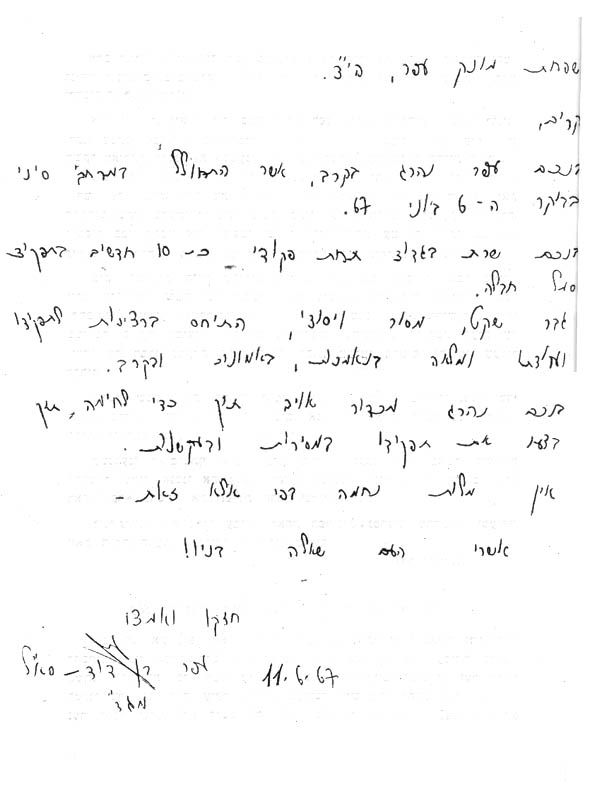 משפחת מונק עפר, הי"ד.
יקרים,
בנכם עפר נהרג בקרב, אשר התחולל במרחבי סיני
בבוקר ה- 6 ביוני 67.
בנכם שרת בגדוד תחת פקודי כ- 10 חדשים בתפקיד
סמל חבלה.
גבר שקט, מסור ויסודי, התיחס ברצינות לתפקידו
ומלאה בנאמנות, באמונים ובקרב.
בנכם נהרג מכדור אויב תוך כדי לחימה, תוך
בצעו את תפקידו במסירות ובעקשנות.
אין מלות נחמה בפי אלא זאת -
אשרי העם שאלה בניו!
חזקו ואמצו
עפר בן דוד - סא"ל
11.6.67
מג"ד